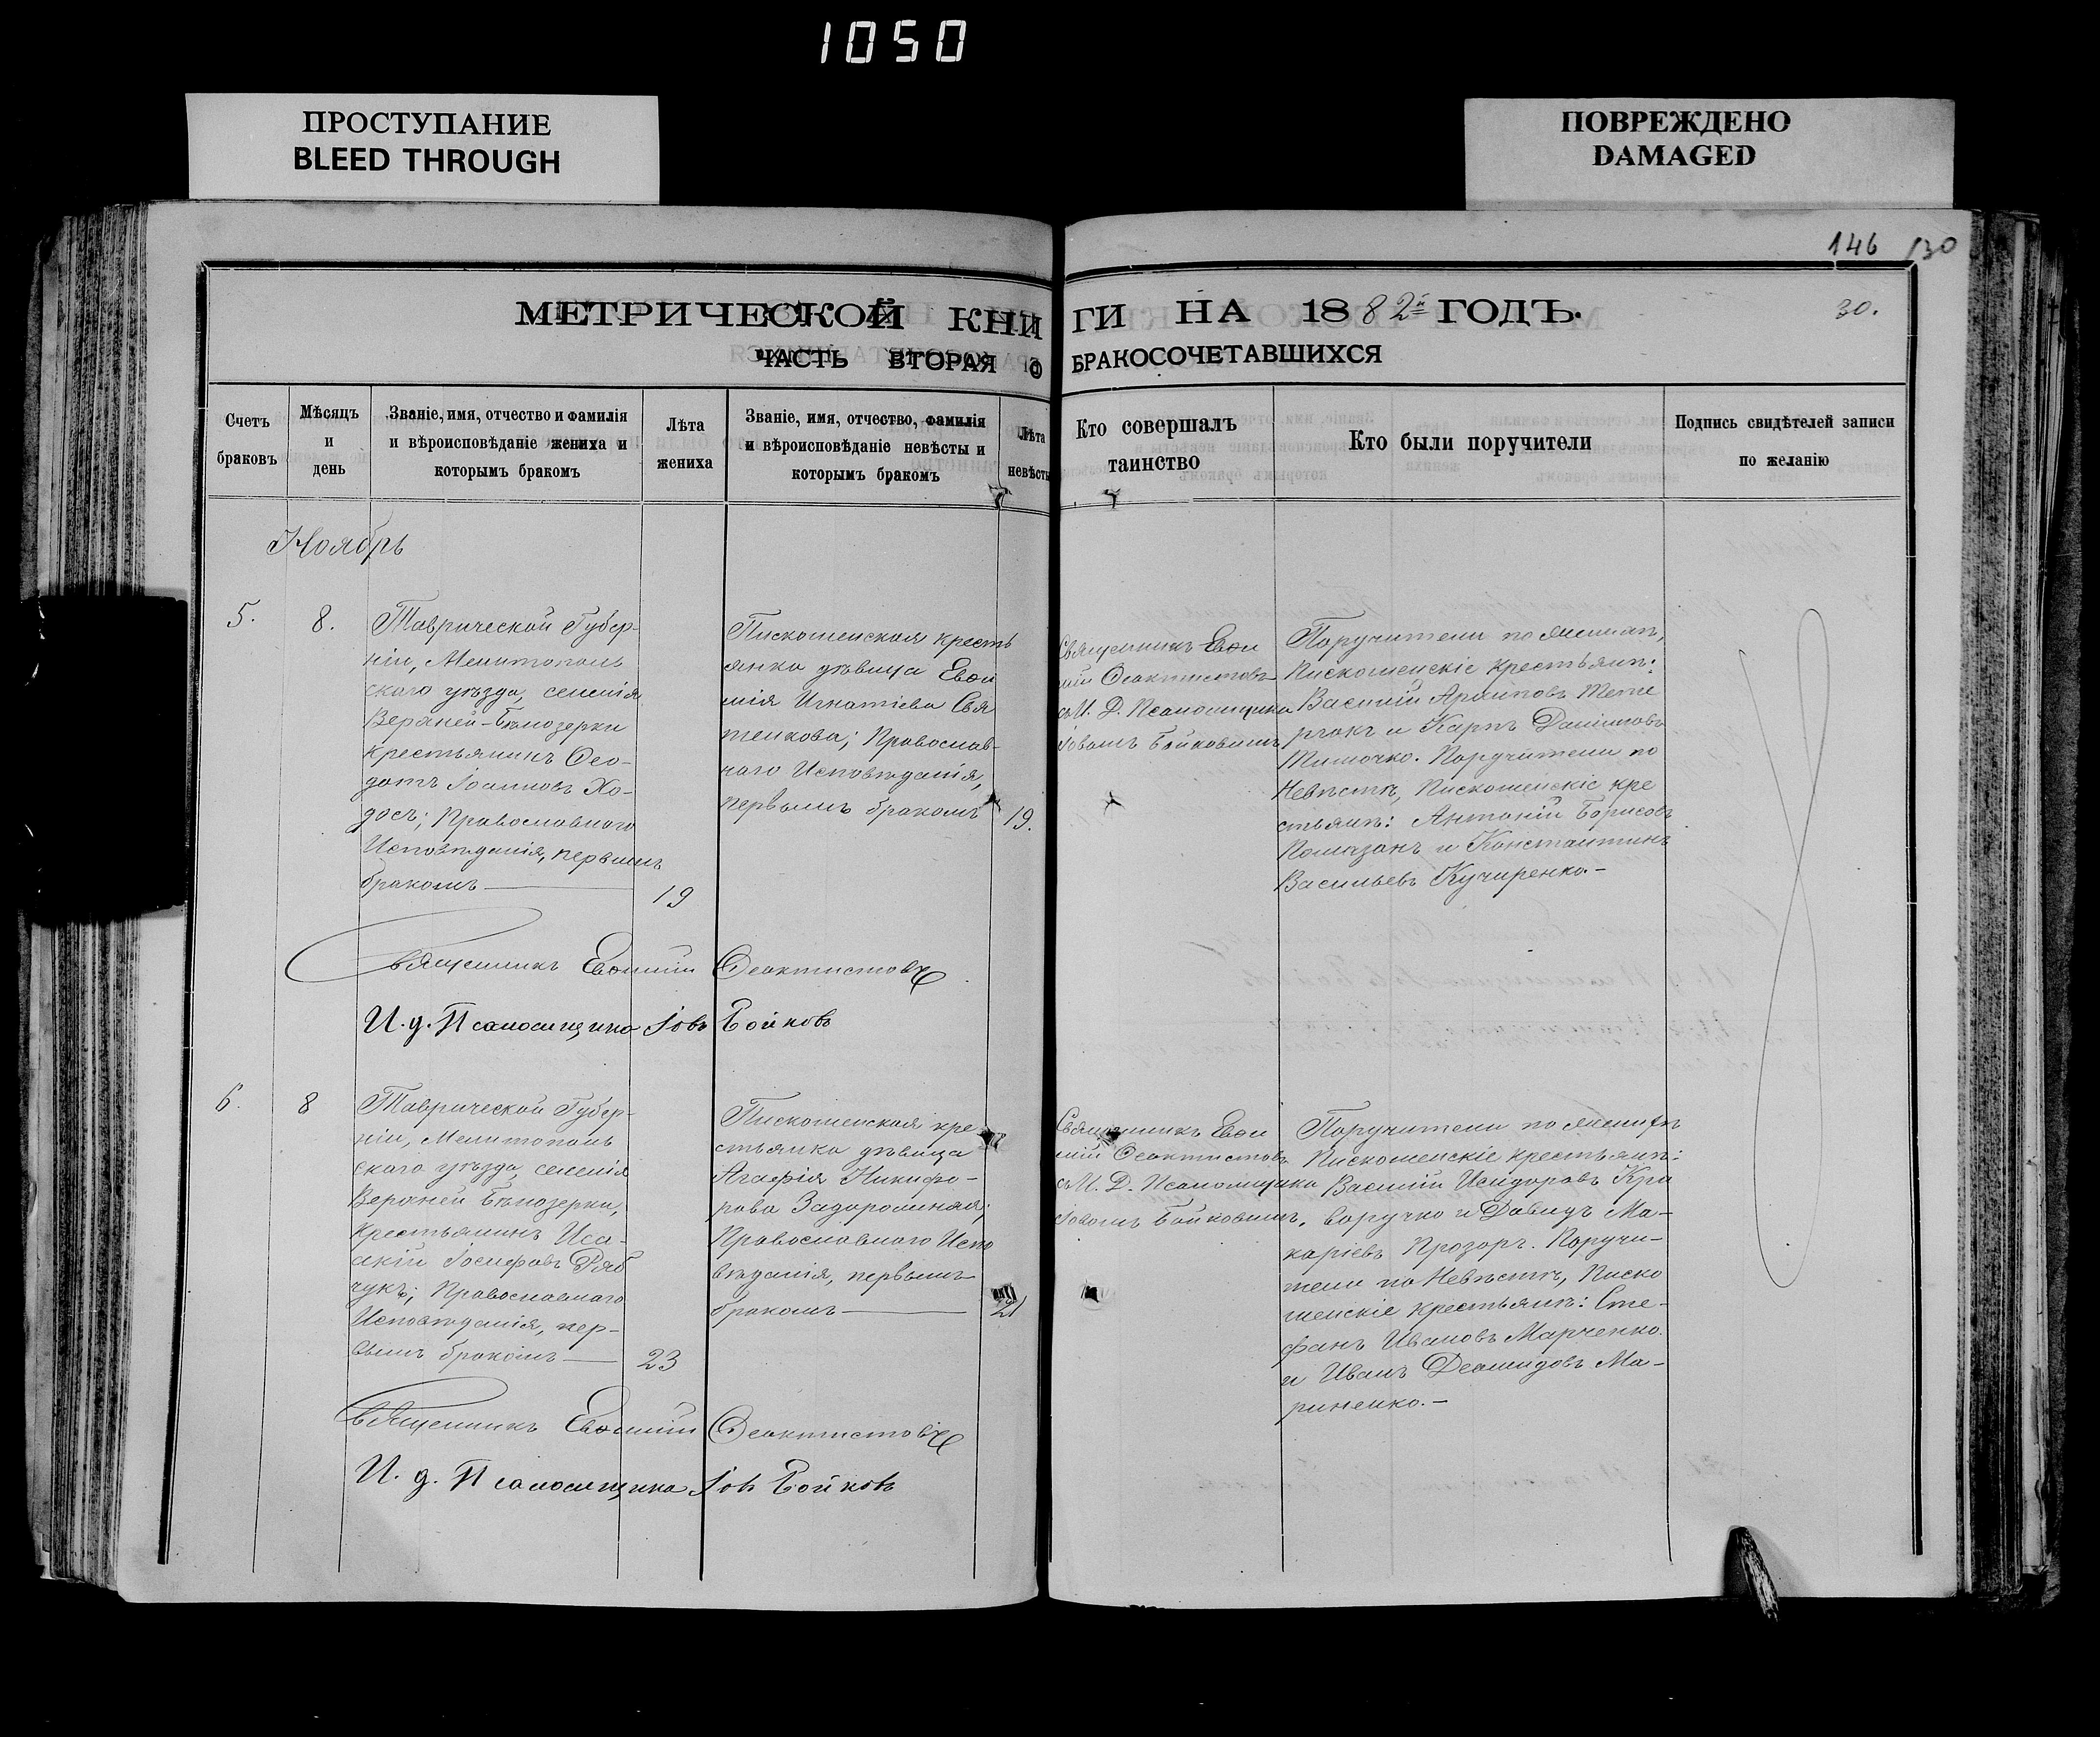 1050
ПРОСТУПАНИЕ
BLEED THROUGH
ПОВРЕЖДЕНО
DAMAGED
146 130
30.
МЕТРИЧЕСКОЙ КНИГИ НА 1882й ГОДЪ.
ЧАСТЬ ВТОРАЯ О БРАКОСОЧЕТАВШИХСЯ
Счетъ
браковъ
Мѣсяцъ
и
день
Званіе, имя, отчество и фамилія
и вѣроисповѣданіе жениха и
которымъ бракомъ
Лѣта
жениха
Званіе, имя, отчество, фамилія
и вѣроисповѣданіе невѣсты и
которымъ бракомъ
Лѣта
невѣсты
Кто совершалъ
таинство
Кто были поручители
Подпись свидѣтелей записи
по желанію
Ноябрь
5.
8.
Таврической Губер-
ніи, Мелитополь
скаго уѣзда, селенія
Верхней-Бѣлозерки
крестьянинъ Ѳео-
дотъ Іоанновъ Хо-
досъ; Православнаго
Исповѣданія, первымъ
бракомъ
19
Пискошенская кресть
янка дѣвица Евѳи
мія Игнатіева Свя
тенкова; Православ-
наго Исповѣданія,
первымъ бракомъ
19.
Священникъ Евѳи
мій Ѳеоктистовъ
съ И. Д. Псаломщика
Іовомъ Бойковымъ
Поручители по женихѣ,
Пискошенскіе крестьяне:
Василій Архиповъ
и Карпъ Даніиловъ
Тимочко. Поручители по
Невѣстѣ, Пискошенскіе кре
стьяне: Антоній Борисовъ
Помазанъ и Константинъ
Васильевъ Кучиренко.-
Священникъ Евѳимій Ѳеоктистовъ
И. д. Псаломщика Іовъ Бойковъ
6.
8
Таврической Губер-
ніи, Мелитополь
скаго уѣзда, селенія
Верхней Бѣлозерки,
крестьянинъ Иса-
акій Іосифовъ Ряб
чукъ; Православнаго
Исповѣданія, пер-
вымъ бракомъ
23
Пискошенская кре
стьянка дѣвица
Агафія Никифо-
рова Задорожная;
Православнаго Испо
вѣданія, первымъ
бракомъ
21
Священникъ Евѳи
мій Ѳеоктистовъ
съ И. Д. Псаломщика
Іовомъ Бойковымъ.
Поручители по женихѣ
Пискошенскіе крестьяне:
Василій Исидоровъ Кри
воручко и Давидъ Ма-
каріевъ Прозоръ. Поручи-
тели по Невѣстѣ, Писко
шенскіе крестьяне: Сте-
фанъ Ивановъ Марченко
и Иванъ Демидовъ Ма-
риненко.-
Священникъ Евѳимій Ѳеоктистовъ
И. д. Псаломщика Іовъ Бойковъ